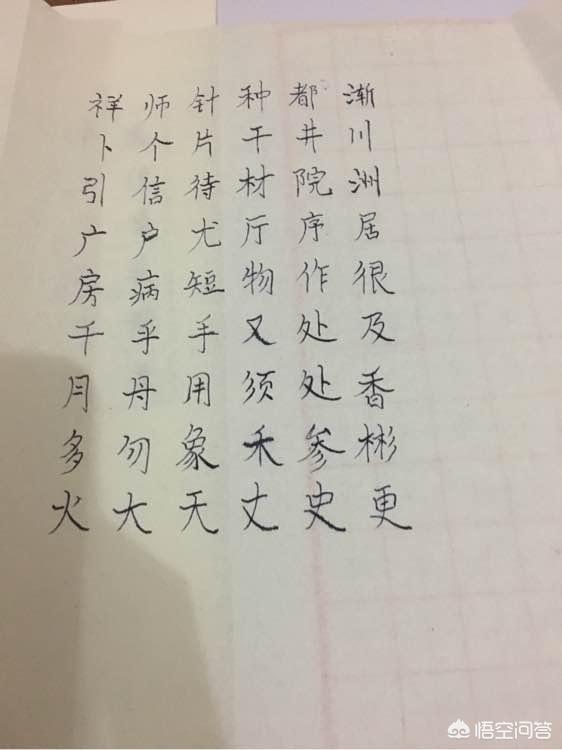 祥师针种都渐
卜个片干井川
引信待材院洲
广户尤厅序居
房病短物作很
千乎手又处及
月丹用须处香
多勿象禾参彬
火大天丈史更
悟空问答